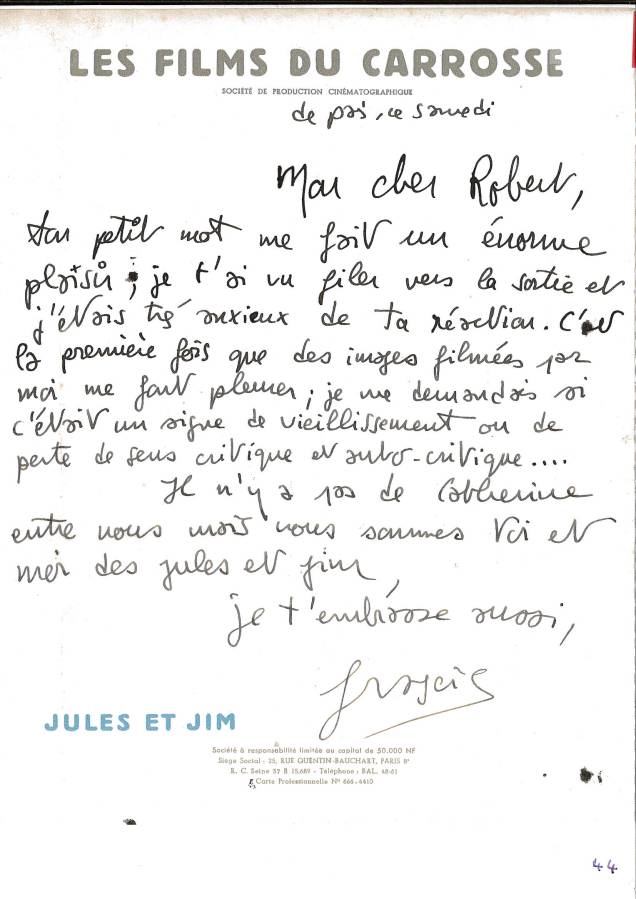 LES FILMS DU CARROSSE
SOCIÉTÉ DE PRODUCTION CINÉMATOGRAPHIQUE
de , ce samedi
Mon cher Robert,
ton petit mot me fait un énorme
plaisir ; je t'ai vu filer vers la sortie et
j'étais très anxieux de ta réaction. C'est
la première fois que des images filmées par
moi me font pleurer ; je me demandais si
c'était un signe de vieillissement ou de
perte de sens critique et auto-critique....
Il n'y a pas de Catherine
entre nous mais nous sommes toi et
moi des jules et jim,
je t'embrasse aussi,
françois
JULES ET JIM
Société à responsabilité limitée au capital de 50.000 NF
Siège Social : 25, RUE QUENTIN-BAUCHART, PARIS 8e
R. C. Seine 57 B 15.689 - Téléphone : BAL. 48-61
Carte Professionnelle No 666.4410
44